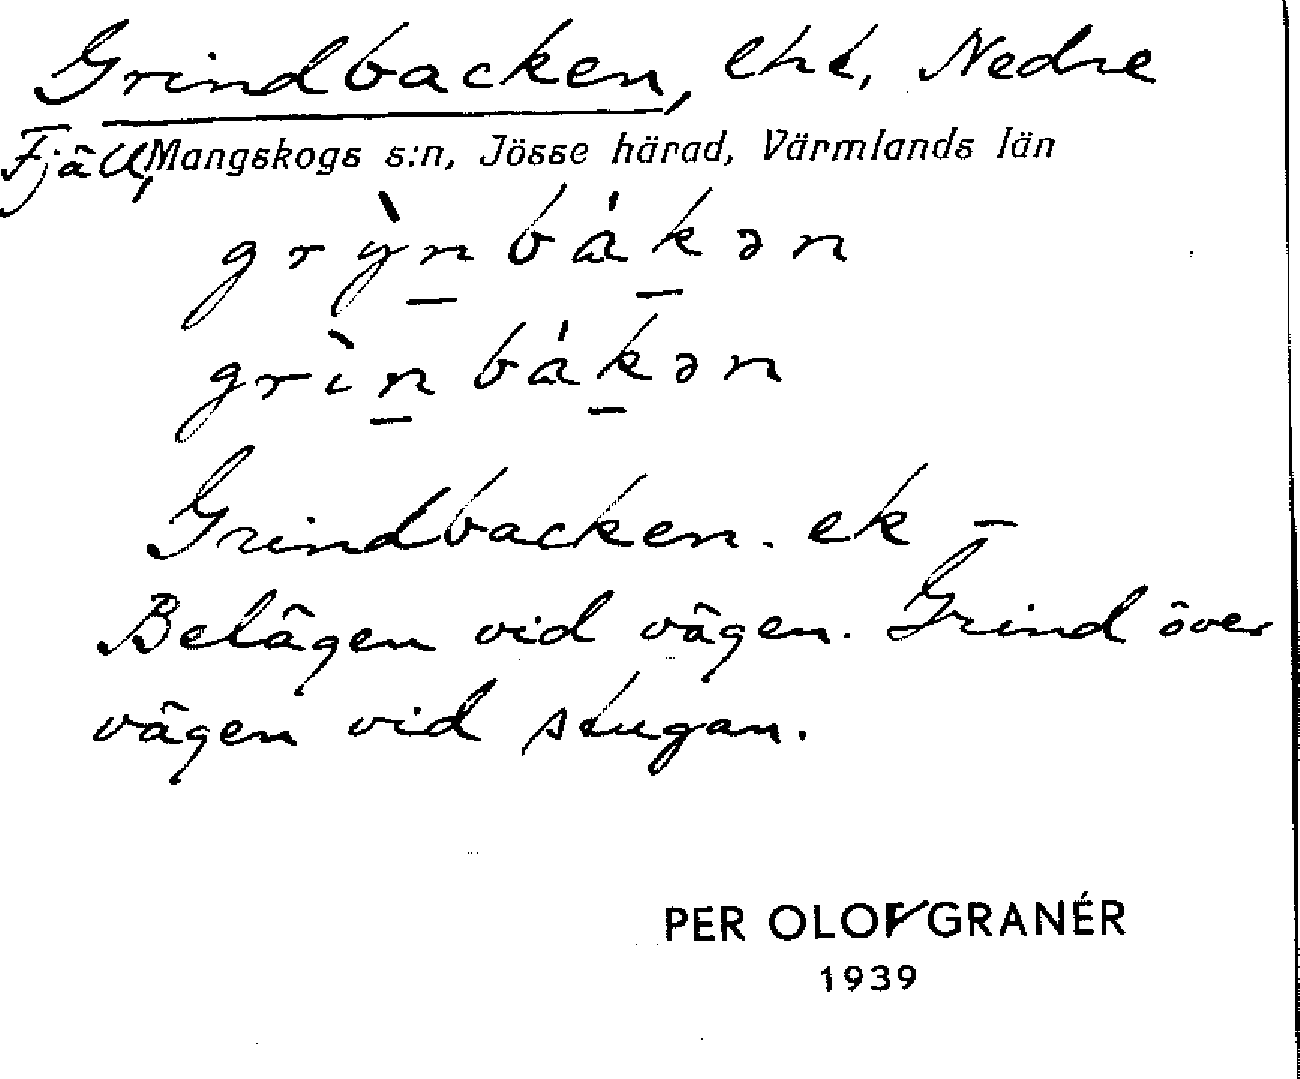 Grindbacken, lht, Nedre
Fjäll, Mangskogs s:n, Jösse härad, Värmlands län
grỳn̲bák̲ən
grìn̲bák̲ən
Grindbacken. ek –
Belägen vid vägen. Grind över
vägen vid stugan.
PER OLOF GRANÉR
1939